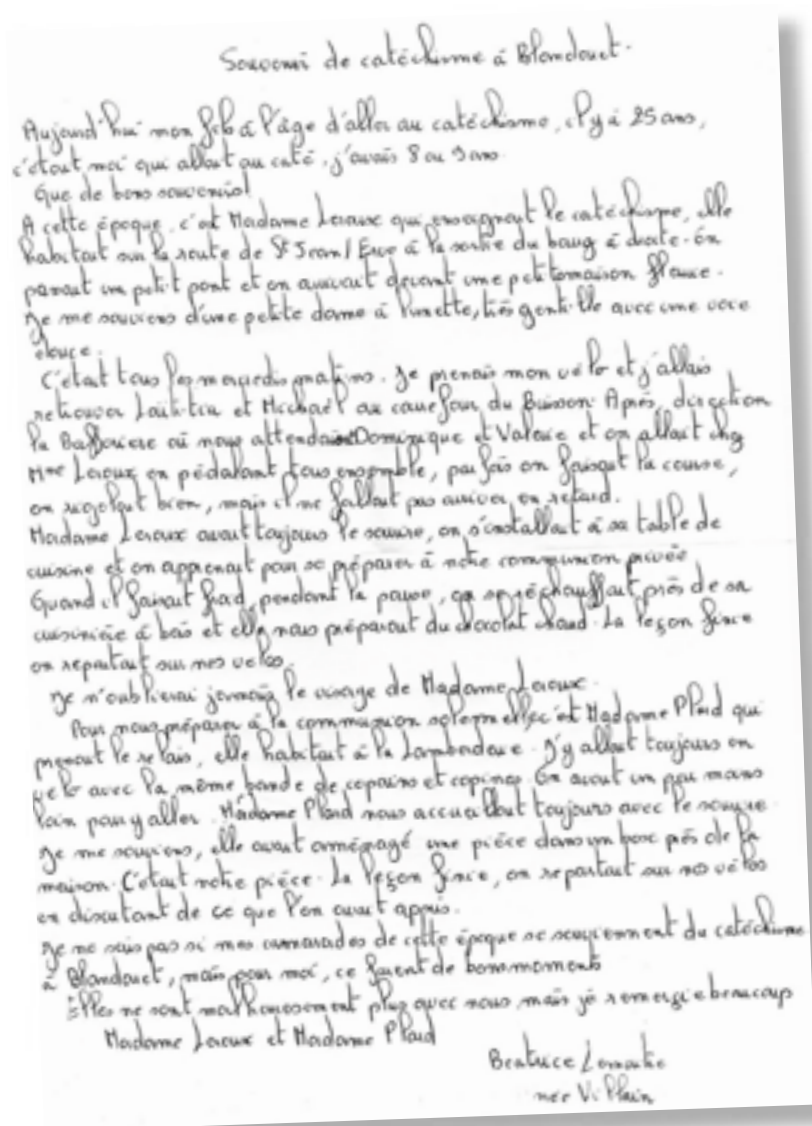 Souvenir de catéchisme à Blandouet.
Aujourd'hui mon fils à l'âge d'aller au catéchisme, il y a 25 ans,
c'était moi qui allait au caté. j'avais 8 ou 9 ans.
Que de bons souvenirs!
A cette époque, c'est Madame Leroux qui enseignait le catéchisme, elle
habitait sur la route de St Jean/Erve à la sortie du bourg à droite. On
passait un petit pont et on arrivait devant une petite maison
Je me souviens d'une petite dame à lunette, très gentille avec une voix
douce.
C'était tous les mercredis matins. Je prenais mon vélo et j'allais
retrouver Laëtitia et Michaël au carrefour du Buisson. Après, direction
la où nous attendaient Dominique et Valérie et on allait chez
Mme Leroux en pédalant tous ensemble, parfois on faisait la course,
on rigolait bien, mais il ne fallait pas arriver en retard.
Madame Leroux avait toujours le sourire, on s'installait à sa table de
cuisine et on apprenait pour se préparer à notre communion privée
Quand il faisait froid, pendant la pause, on se réchauffait près de sa
cuisinière à bois et elle nous préparait du chocolat chaud. La leçon finie
on repartait sur nos vélos.
Je n'oublierai jamais le visage de Madame Leroux.
Pour nous préparer à la communion solennelle c'est Madame Plard qui
prenait le relais, elle habitait à la J'y allait toujours en
vélo avec la même bande de copains et copines. On avait un peu moins
loin pour y aller. Madame Plard nous accueillait toujours avec le sourire.
Je me souviens, elle avait aménagé une pièce dans un box près de la
maison. C'était notre pièce. La leçon finie, on repartait sur nos vélos
en discutant de ce que l'on avait appris.
Je ne sais pas si mes camarades de cette époque se souviennent du catéchisme
à Blandouet, mais pour moi, ce furent de bons moments
Elles ne sont malheureusement plus avec nous mais je remercie beaucoup
Madame Leroux et Madame Plard
Beatrice
née Vilain